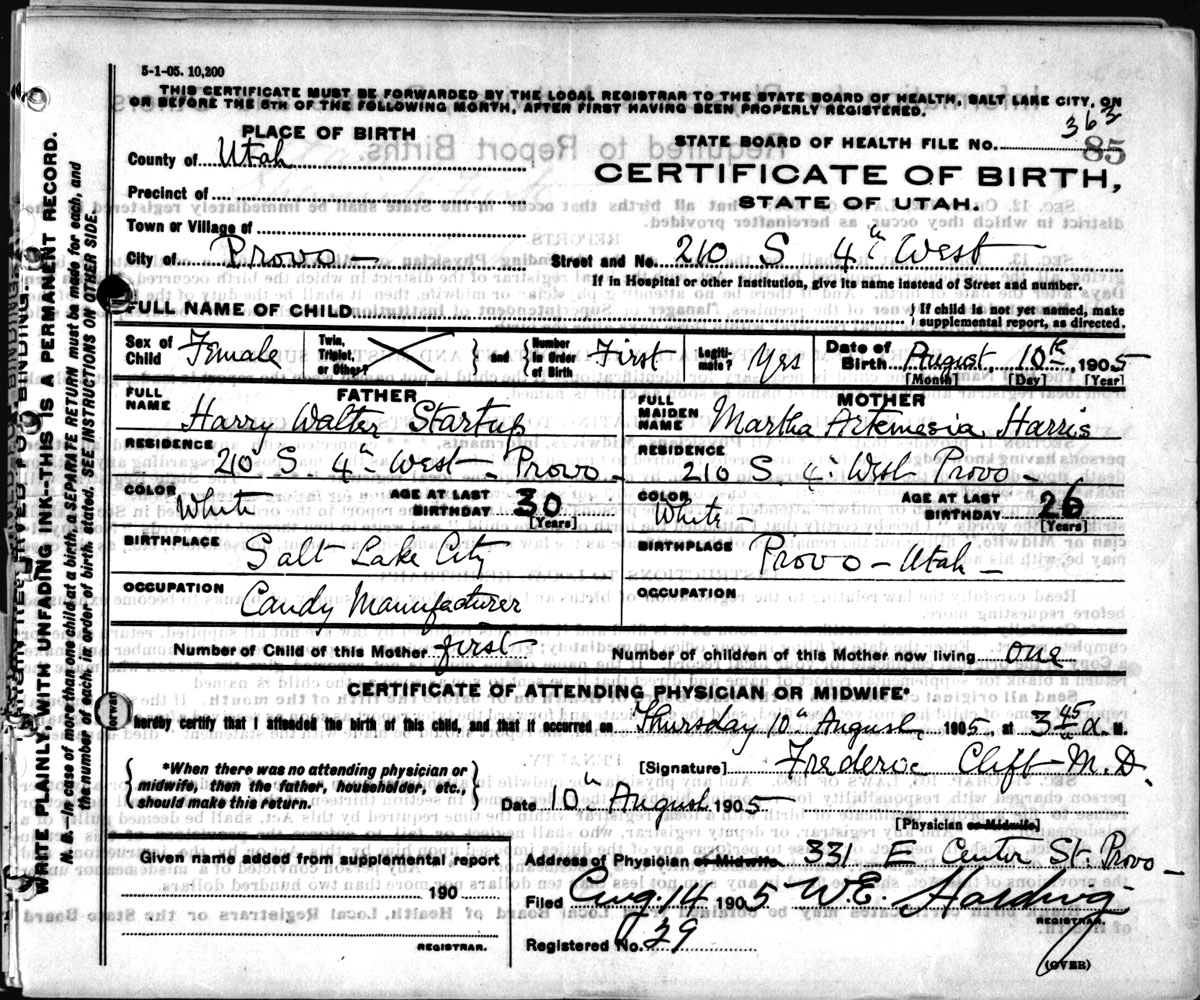 5-1-05. 10,200
THIS CERTIFICATE MUST BE FORWARDED BY THE LOCAL REGISTRAR TO THE STATE BOARD OF HEALTH, SALT LAKE CITY, ON
OR BEFORE THE 5TH OF THE FOLLOWING MONTH, AFTER FIRST HAVING BEEN PROPERLY REGISTERED.
363
PLACE OF BIRTH
STATE BOARD OF HEALTH FILE NO. 85
County of Utah
CERTIFICATE OF BIRTH,
Precinct of
STATE OF UTAH.
Town or Village of
City of Provo - Street and No. 210 S 4th West
If in Hospital or other Institution, give its name instead of Street and number.
FULL NAME OF CHILD
If child is not yet named, make
supplemental report, as directed.
Sex of Child Female
Twin, Triplet, or Other? X
and Number in Order of Birth First
Legiti-mate? Yes
Date of Birth August 10th, 1905
[Month] [Day] [Year]
FATHER
FULL NAME Harry Walter Startup
RESIDENCE 210 S 4th West Provo
COLOR White AGE AT LAST BIRTHDAY 30
[Years]
BIRTHPLACE Salt Lake City
OCCUPATION Candy Manufacturer
MOTHER
FULL MAIDEN NAME Martha Artemesia Harris
RESIDENCE 210 S 4th West Provo
COLOR White AGE AT LAST BIRTHDAY 26
[Years]
BIRTHPLACE Provo - Utah -
OCCUPATION
Number of Child of this Mother first Number of children of this Mother now living one
CERTIFICATE OF ATTENDING PHYSICIAN OR MIDWIFE*
hereby certify that I attended the birth of this child, and that it occurred on Thursday 10th August, 1905, at 3 45 a. M.
*When there was no attending physician or
midwife, then the father, householder, etc.,
should make this return.
[Signature] Frederic Clift M.D.
Date 10th August 1905
[Physician or Midwife]
Given name added from supplemental report
190
REGISTRAR.
Address of Physician or Midwife 331 E Center St. Provo
Filed Aug. 14 1905 W.E.
REGISTRAR.
Registered No. 29
(OVER)
MARGIN RESERVED FOR BINDING
WRITE PLAINLY, WITH UNFADING INK--THIS IS A PERMANENT RECORD.
N. B.—In case of more than one child at a birth, a SEPARATE RETURN must be made for each, and
the number of each, in order of birth, stated. SEE INSTRUCTIONS ON OTHER SIDE.